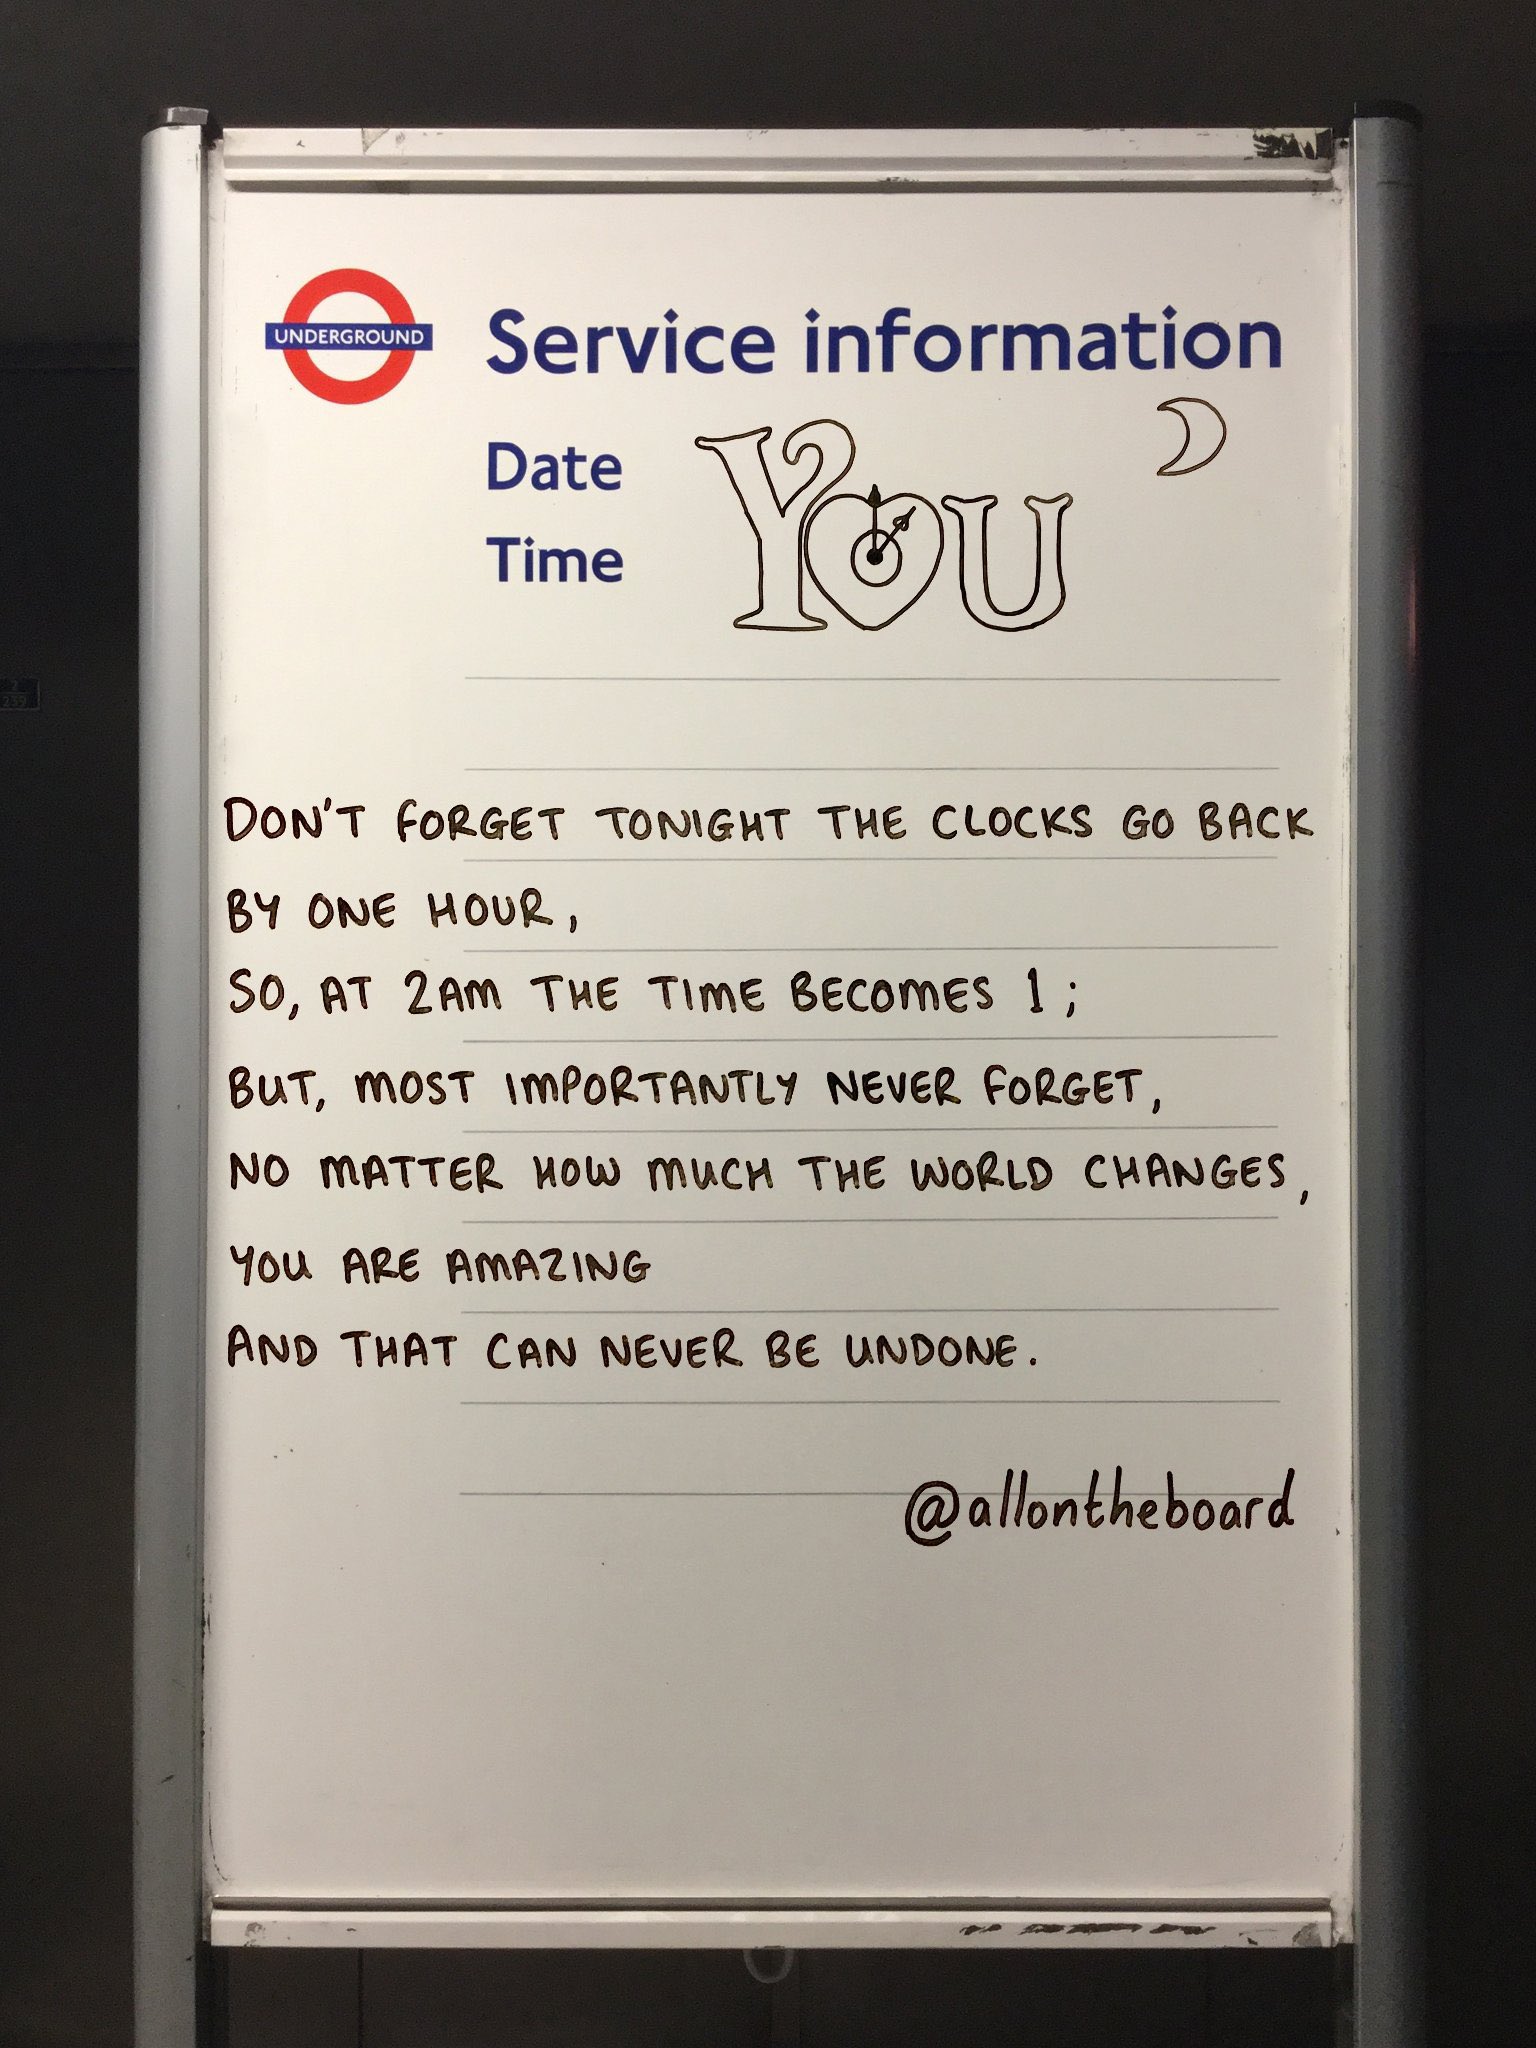 UNDERGROUND
Service information
Date
Time
YOU
DON'T FORGET TONIGHT THE CLOCKS GO BACK
BY ONE HOUR,
SO, AT 2AM THE TIME BECOMES 1;
BUT, MOST IMPORTANTLY NEVER FORGET,
NO MATTER HOW MUCH THE WORLD CHANGES,
YOU ARE AMAZING
AND THAT CAN NEVER BE UNDONE.
@allontheboard